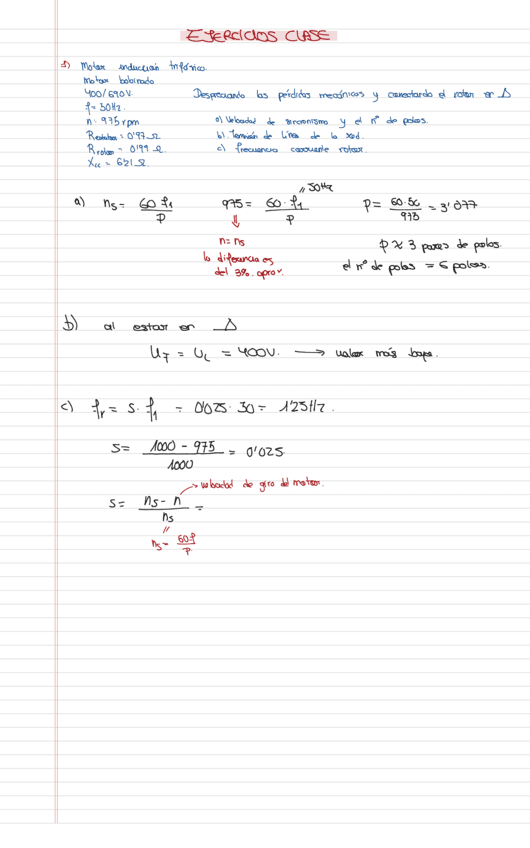 EJERCICIOS CLASE
1) Motor inducción trifásico.
motor bobinado
400/690V.
f = 50Hz.
n = 975rpm
Restator = 0'97 Ω
Rrotor = 0'99 Ω
Xcc = 6'21 Ω.
Despreciando las pérdidas mecánicas y conectando el rotor en Δ
a) Velocidad de sincronismo y el nº de polos.
b) Tensión de línea de la red.
c) frecuencia corriente rotor.
a) ns = 60·f1 / P
975 = 60·f1 / P
// 50Hz
⇓
n = ns
la diferencia es
del 3%. aprox.
P = 60·50 / 975 = 3'077
P ≈ 3 pares de polos.
el nº de polos = 6 polos.
b) al estar en Δ
Uf = UL = 400V. → valor más bajo.
c) fr = s·f1 = 0'025·50 = 1'25Hz.
s = 1000 - 975 / 1000 = 0'025
s = ns - n / ns =
→ velocidad de giro del motor.
//
ns = 60·f / P